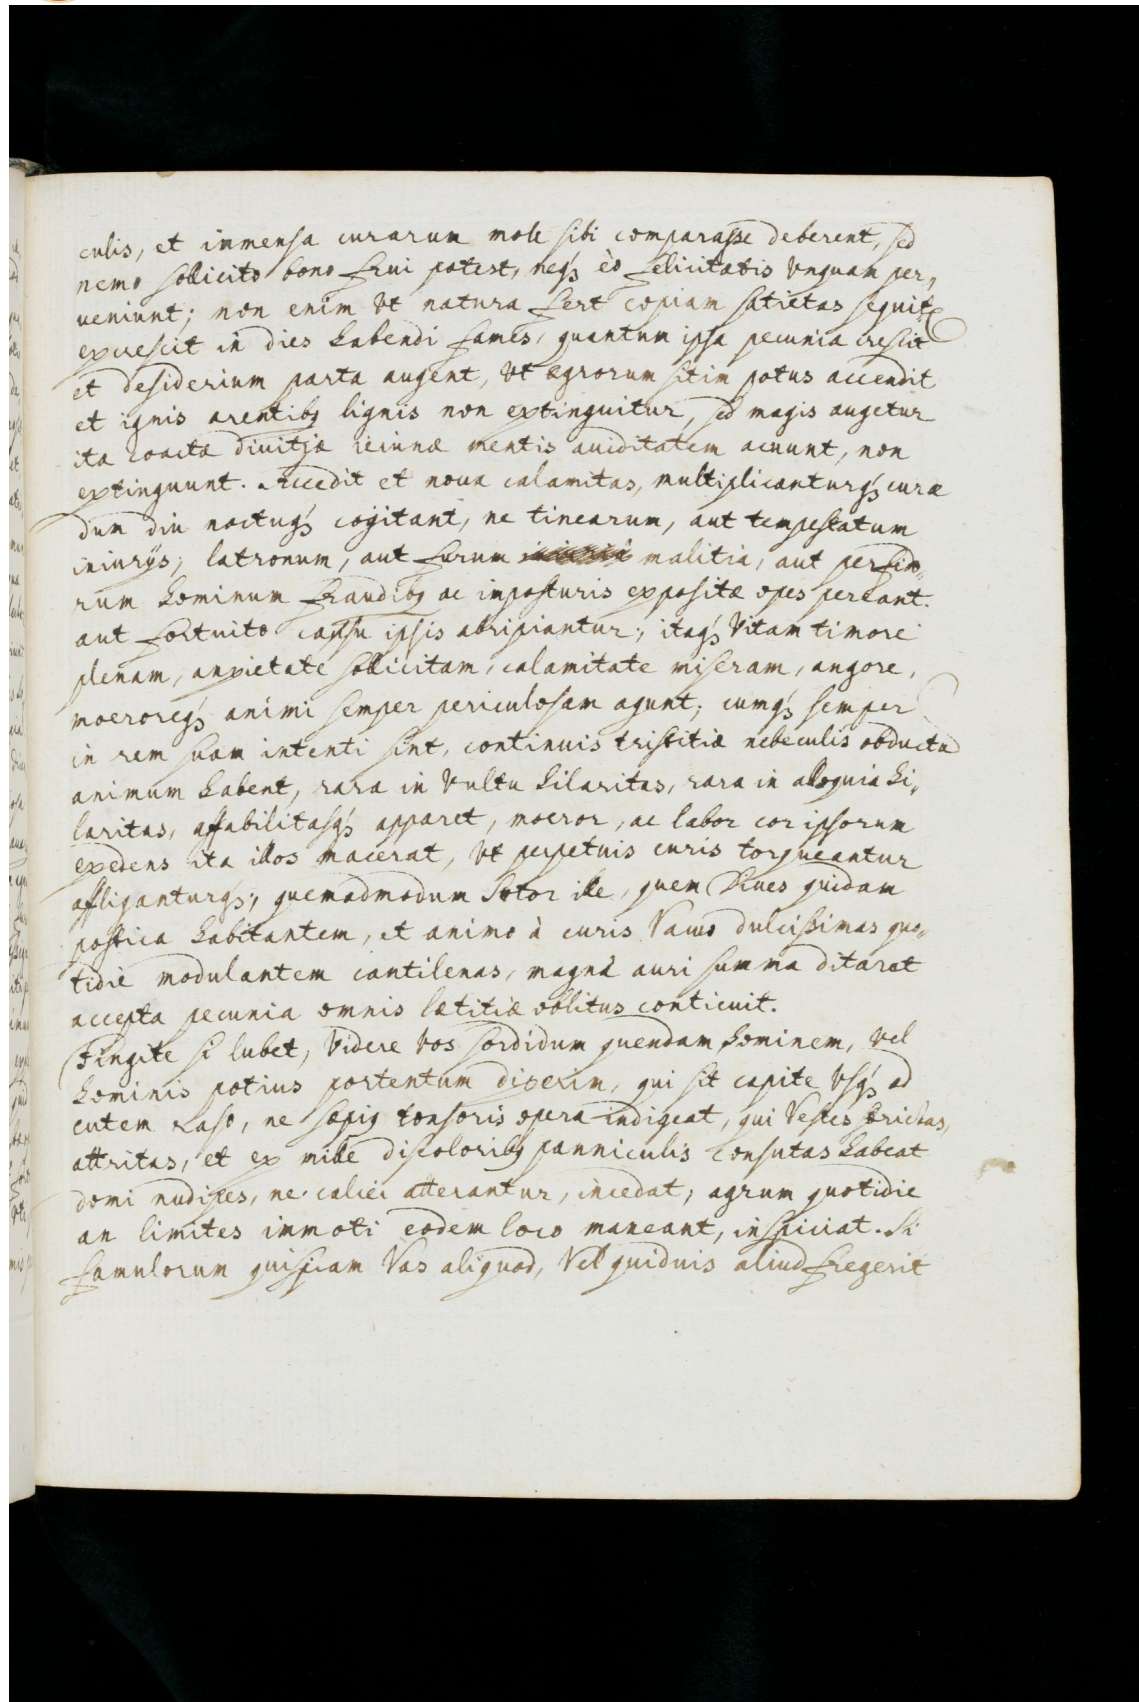 culis, et immensa curarum mole sibi comparasse deberent, sed
nemo sollicito bono frui potest, neq3 eò felicitatis vnquam per„
ueniunt; non enim vt natura fert copiam satietas sequit
excrescit in dies habendi fames, quantum ipsa pecunia crescit
et desiderium parta augent, vt ægrorum sitim potus accendit
et ignis arentib9 lignis non extinguitur, sed magis augetur
ita coactæ diuitiæ ieiunæ mentis auiditatem acuunt, non
extinguunt. Accedit et noua calamitas, multiplicanturq3 curæ
dum diu noctuq3 cogitant, ne tinearum, aut tempestatum
iniurijs, latronum, aut furum malitia, aut perfido„
rum hominum fraudib9 ac imposturis expositæ opes pereant.
aut fortuito cassu ipsis abripiantur; itaq3 vitam timore
plenam, anxietate sollicitam, calamitate miseram, angore,
moeroreq3 animi semper periculosam agunt; cumq3 semper
in rem suam intenti sint, continuis tristitiæ nebeculis obductu
animum habent, rara in vultu hilaritas, rara in alloquia hi„
laritas, affabilitasq3 apparet, moeror, ac labor cor ipsorum
exedens ita illos macerat, vt perpetuis curis torqueantur
affliganturq3; quemadmodum sutor ille, quem Diues quidam
postica habitantem, et animo à curis vacuo dulcissimas quo„
tidie modulantem cantilenas, magnâ auri summa ditarat
accepta pecunia omnis lætitiæ oblitus conticuit.
Fingite si lubet, videre vos sordidum quendam hominem, vel
hominis potius portentum dixerim, qui sit capite vsq3 ad
cutem raso, ne sæpi9 tonsoris opera indigeat, qui vestes
attritas, et ex mille discolorib9 panniculis consutas habeat
domi nudipes, ne calcei atterantur, incedat, agrum quotidie
an limites immoti eodem loco maneant, inspiciat. Si
famulorum quispiam vas aliquod, vel quiduis aliud fregerit